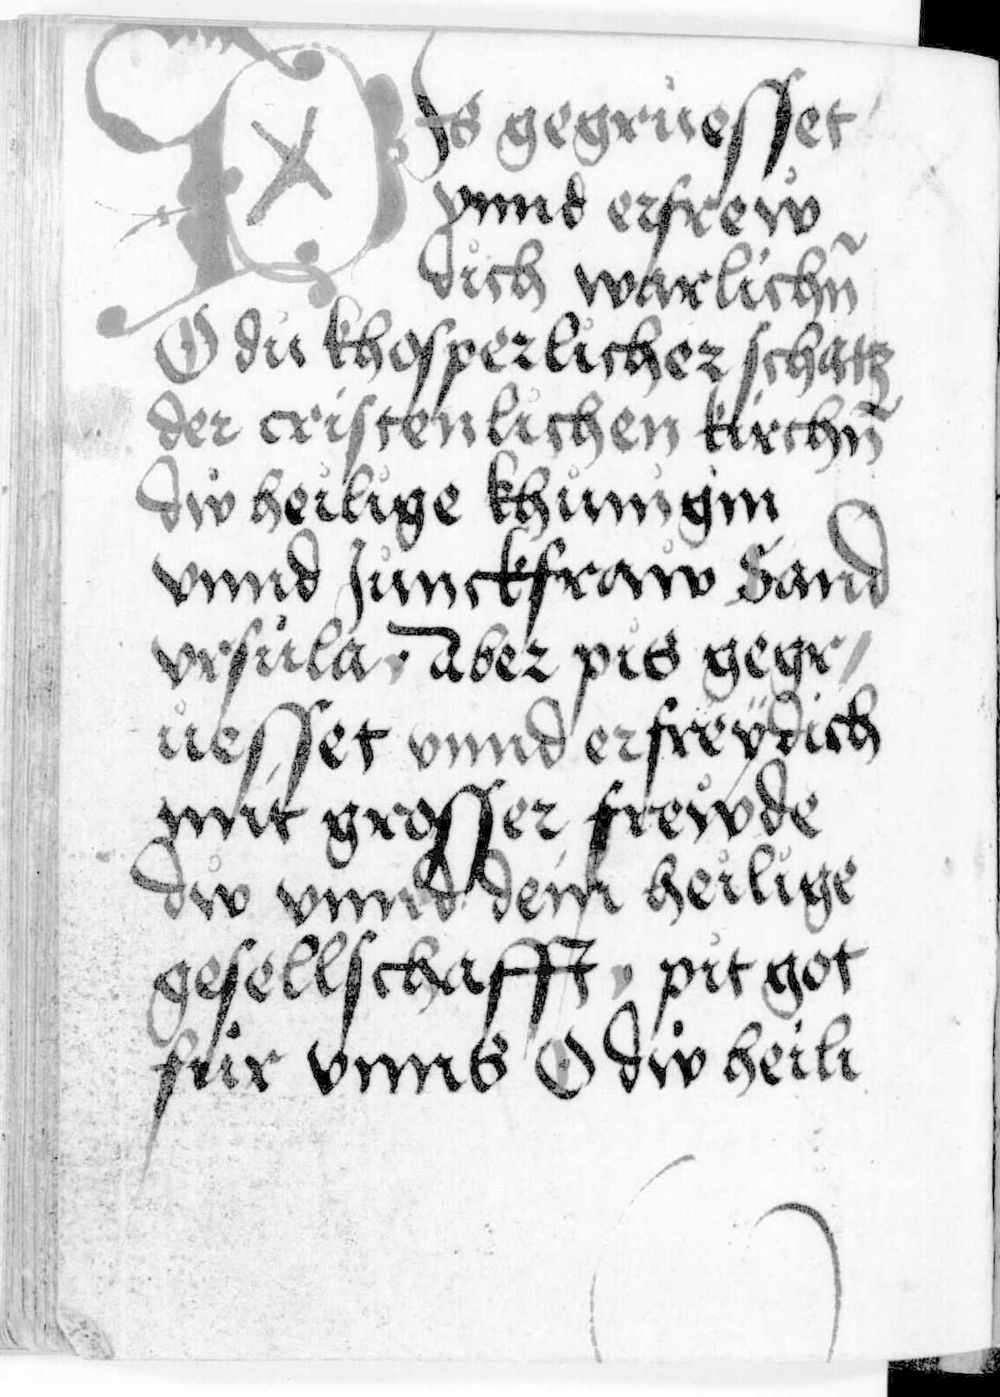 PJs gegrüesset
vnnd erfrew
dich warlichn̄
O du khosperlicher schatz
der cristenlichen kirchn̄
diw heilige khunigin
vnnd Junckfraw Sand
vrsula. Aber pis gegr/
uesset vnnd erfreÿ dich
mit grosser frewde
dw vnnd dein heilige
gesellschafft, pit got
für vnns O diw heili